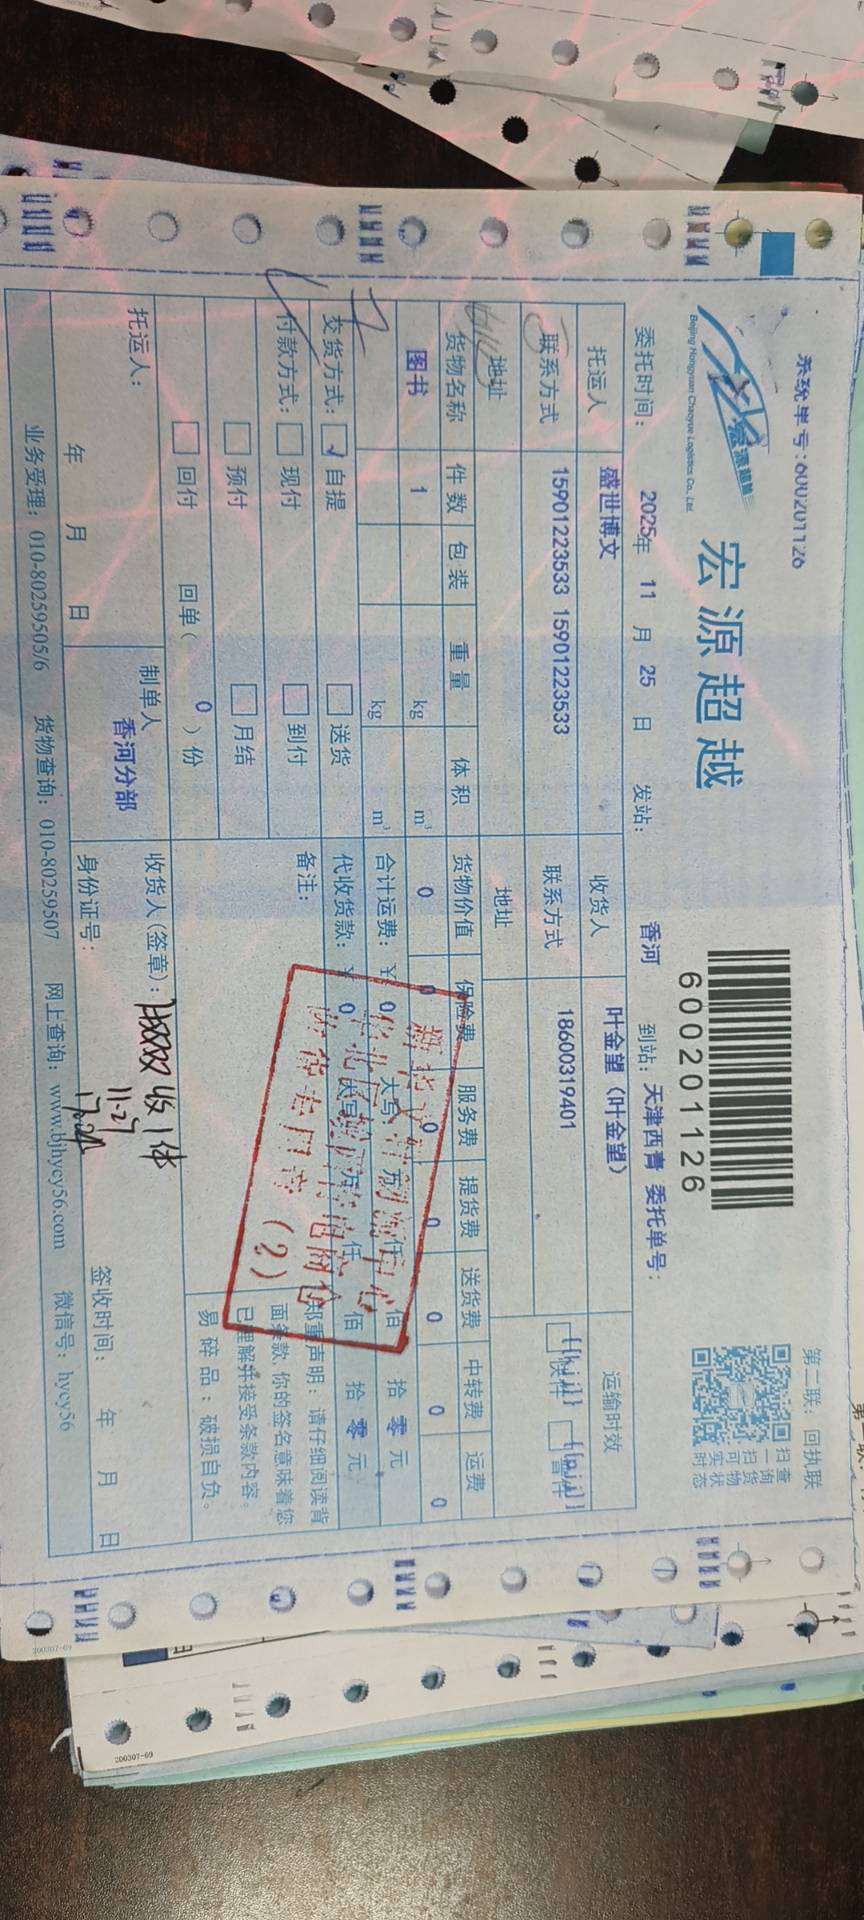 系统单号:600201126
第二联：回执联
宏源超越
Beijing Hongyuan Chaoyue Logistics Co., Ltd.
宏源超越
600201126
扫一扫可实时
查询货物状态
委托时间： 2025年 11 月 25 日 发站： 香河 到站：天津西青 委托单号：
托运人 盛世博文 收货人 叶金望（叶金望） 运输时效
联系方式 15901223533 15901223533 联系方式 18600319401
地址 地址
货物名称 件数 包装 重量 体积 货物价值 保险费 服务费 提货费 送货费 中转费 运费
图书 1 kg m³ 0 0 0 0 0 0 0
kg m³ 合计运费：￥ 0 大写 万 仟 佰 拾 零 元
交货方式： 自提 送货 代收货款：￥ 0 大写 万 仟 佰 拾 零 元
付款方式： 现付 到付 备注：
预付 月结
回付 回单（ 0 ）份
郑重声明：请仔细阅读背
面条款，你的签名意味着您
已理解并接受条款内容。
易碎品：破损自负。
（2）
托运人： 制单人 香河分部 收货人（签章）： 收1件
11-27
年 月 日 身份证号： 签收时间： 年 月 日
业务受理：010-80259505/6 货物查询：010-80259507 网上查询：www.bjhycy56.com 微信号：hycy56
200307-69
200307-69